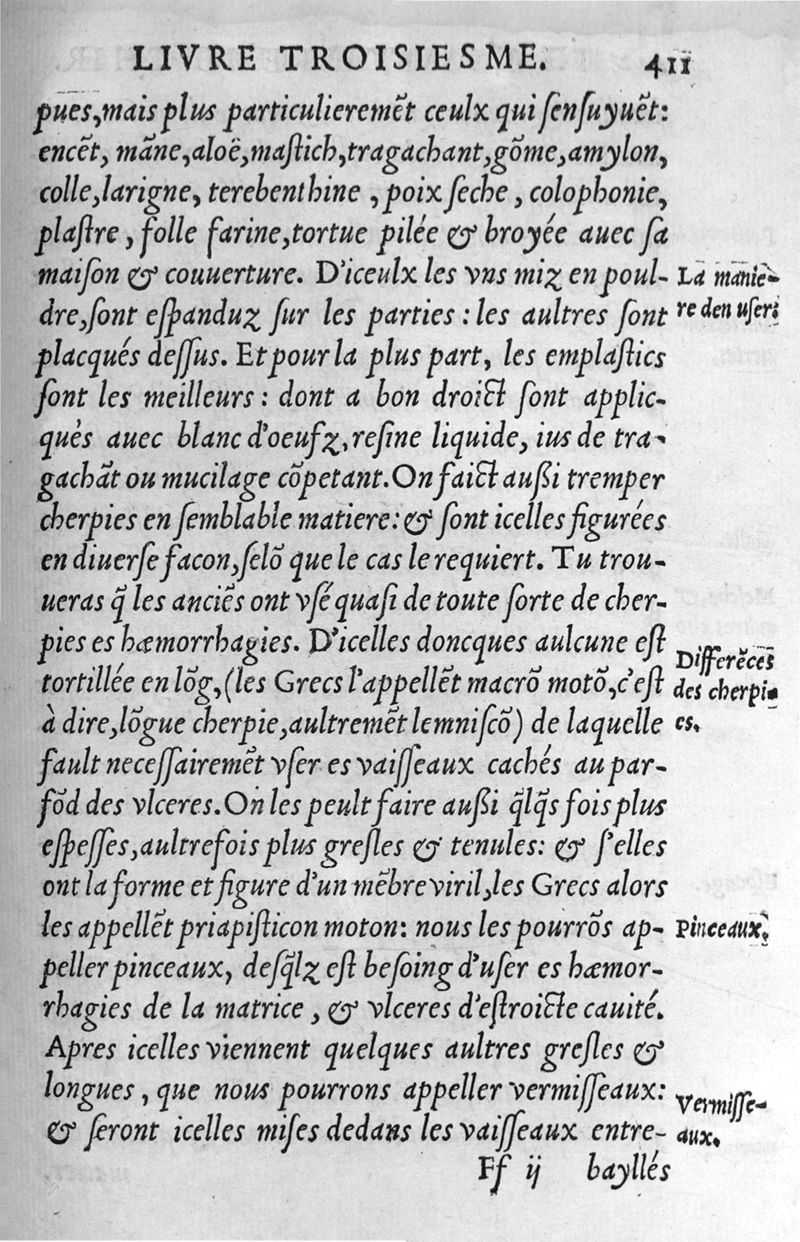 LIVRE TROISIESME. 411
pues,mais plus particulieremẽt ceulx qui ſenſuyuẽt:
encẽt, mãne,aloë,maſtich,tragachant,gõme,amylon,
colle,larigne, terebenthine ,poix ſeche , colophonie,
plaſtre , folle farine,tortue pilée & broyée auec ſa
maiſon & couuerture. D'iceulx les vns miz en poul-
La manie-
dre,ſont eſpanduz ſur les parties : les aultres ſont
re den uſer:
placqués deſſus. Et pour la plus part, les emplaſtics
ſont les meilleurs : dont a bon droict ſont applic-
qués auec blanc d'oeufz,reſine liquide, ius de tra-
gachãt ou mucilage cõpetant.On faict außi tremper
cherpies en ſemblable matiere: & ſont icelles figurées
en diuerſe facon,ſelõ que le cas le requiert. Tu trou-
ueras q̃ les anciẽs ont vſé quaſi de toute ſorte de cher-
pies es hæmorrhagies. D'icelles doncques aulcune eſt
Differẽces
tortillée en lõg,(les Grecs l'appellẽt macrõ motõ,c'eſt
des cherpi-
à dire,lõgue cherpie,aultremẽt lemniſcõ) de laquelle
es.
fault neceſſairemẽt vſer es vaiſſeaux cachés au par-
fõd des vlceres.On les peult faire außi q̃lq̃s fois plus
eſpeſſes,aultrefois plus greſles & tenules: & ſ'elles
ont la forme et figure d'un mẽbre viril,les Grecs alors
les appellẽt priapiſticon moton: nous les pourrõs ap-
Pinceaux.
peller pinceaux, deſq̃lz eſt beſoing d'uſer es hæmor-
rhagies de la matrice , & vlceres d'eſtroicte cauité.
Apres icelles viennent quelques aultres greſles &
longues , que nous pourrons appeller vermiſſeaux:
Vermiſſe-
& ſeront icelles miſes dedans les vaiſſeaux entre-
aux.
Ff ij bayllés